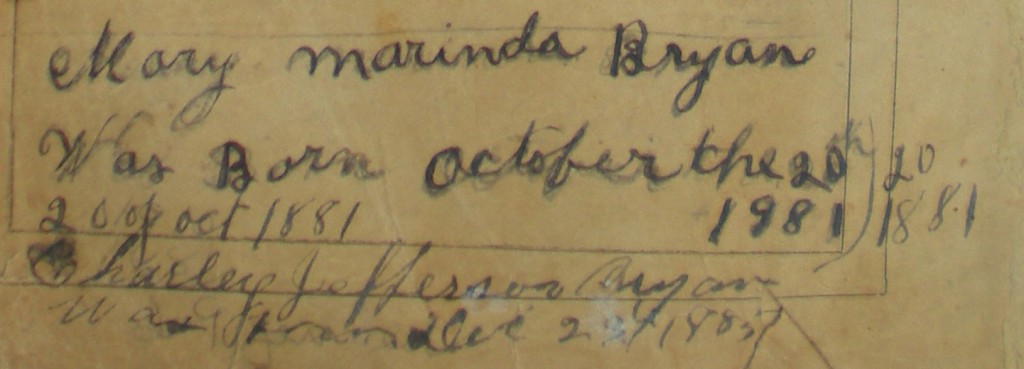 Mary marinda Bryan
Was Born October the 20th 20
20 of oct 1881 1981 1881
Charley Jefferson Bryan
Was born Dec